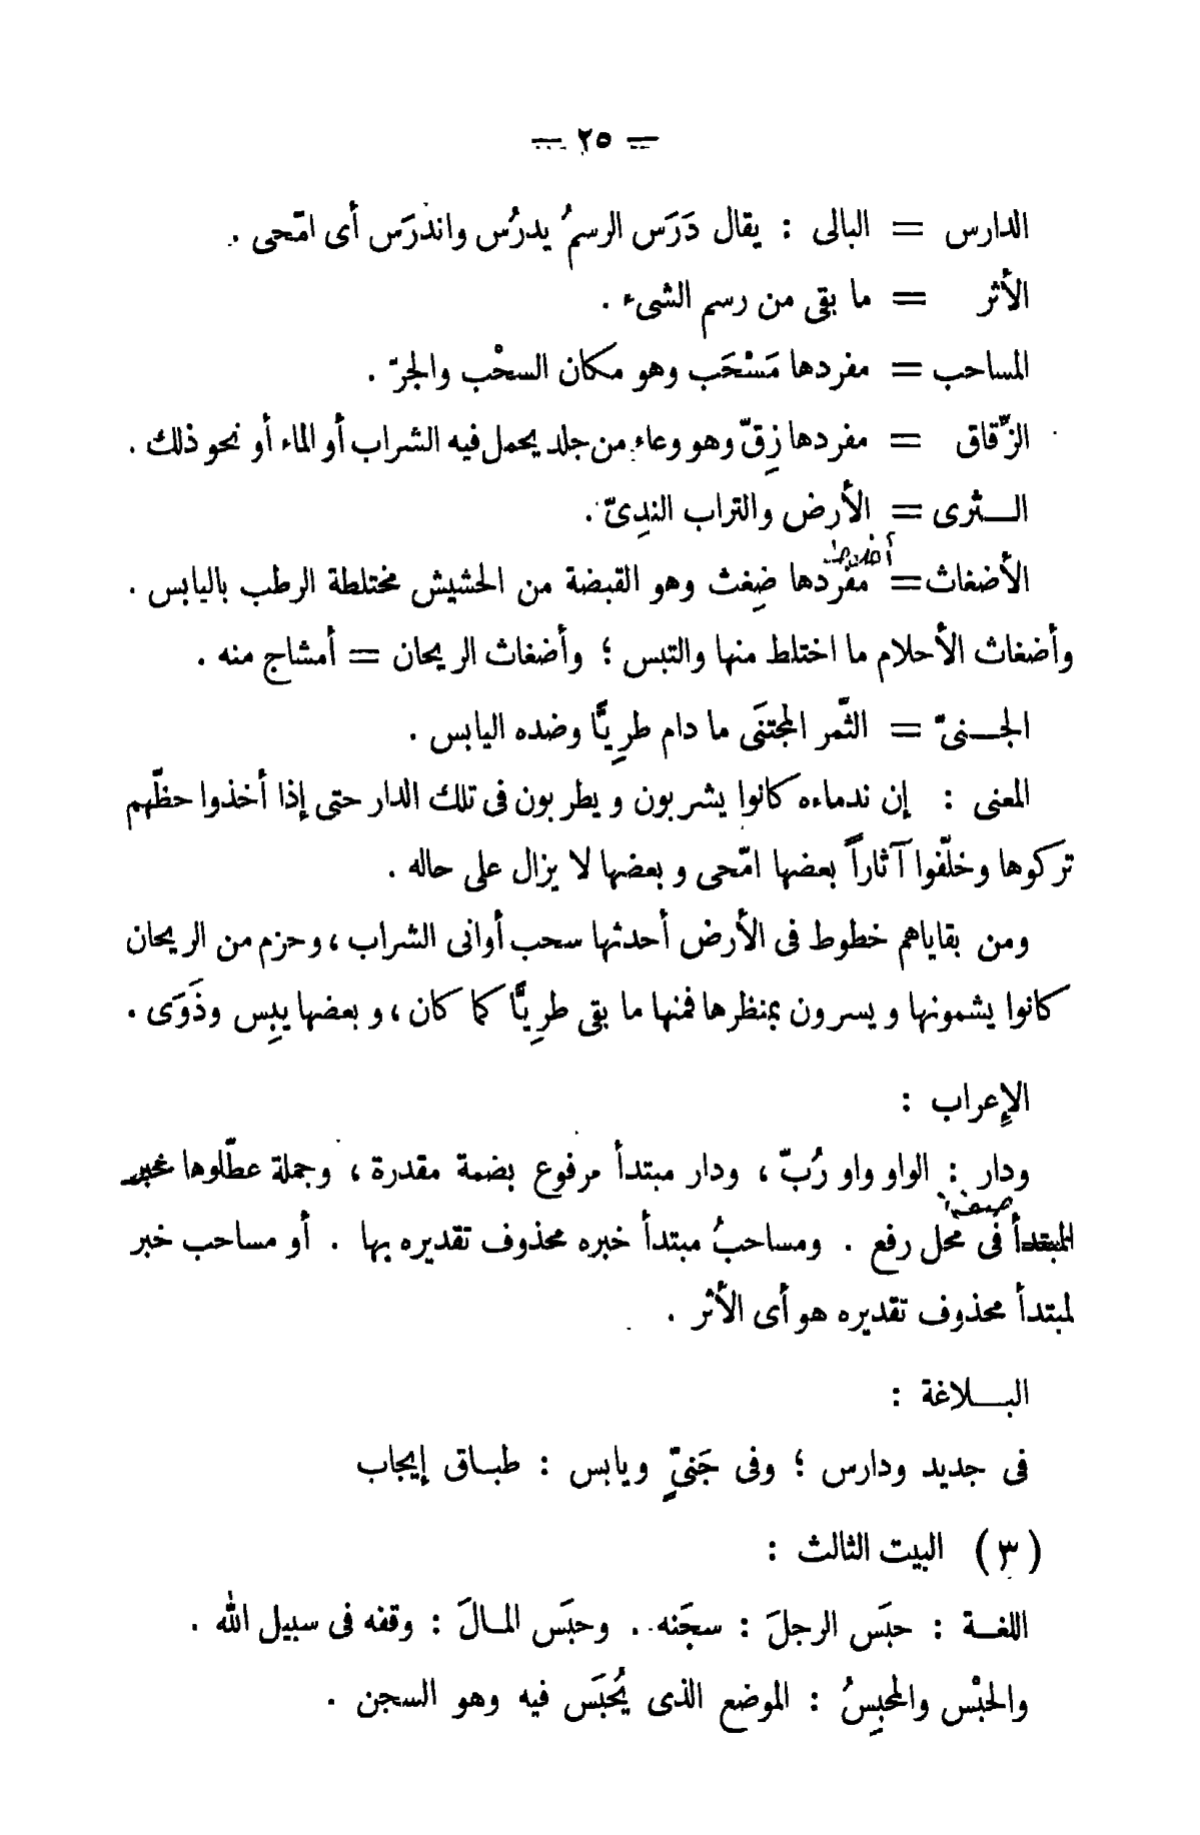 — ٢٥ —
الدارس = البالى : يقال دَرَس الرسمُ يدرُس واندَرَس أى امّحى .
الأثر = ما بقى من رسم الشىء .
المساحب = مفردها مَسْحَب وهو مكان السحْب والجرّ .
الزّقاق = مفردها زِقّ وهو وعاء من جلد يحمل فيه الشراب أو الماء أو نحو ذلك .
الــثرى = الأرض والتراب الندِىّ .
الأضغاث = مفردها ضِغث وهو القبضة من الحشيش مختلطة الرطب باليابس .
وأضغاث الأحلام ما اختلط منها والتبس ؛ وأضغاث الريحان = أمشاج منه .
الجــنىّ = الثّمر المجتنَى ما دام طرِيًّا وضده اليابس .
المعنى : إن ندماءه كانوا يشربون ويطربون فى تلك الدار حتى إذا أخذوا حظّهم
تركوها وخلّفوا آثاراً بعضها امّحى وبعضها لا يزال على حاله .
ومن بقاياهم خطوط فى الأرض أحدثها سحب أوانى الشراب ، وحزم من الريحان
كانوا يشمونها ويسرون بمنظرها فمنها ما بقى طرِيًّا كما كان ، وبعضها يبِس وذَوَى .
الإعراب :
ودار : الواو واو رُبّ ، ودار مبتدأ مرفوع بضمة مقدرة ، وجملة عطّلوها خبر
صفة
المبتدأ فى محل رفع . ومساحبُ مبتدأ خبره محذوف تقديره بها . أو مساحب خبر
لمبتدأ محذوف تقديره هو أى الأثر .
البــلاغة :
فى جديد ودارس ؛ وفى جَنىٍّ ويابس : طبـاق إيجاب
( ٣ ) البيت الثالث :
اللغــة : حبَس الرجلَ : سجَنه . وحبَس المـالَ : وقفه فى سبيل الله .
والحبْس والمحبِسُ : الموضع الذى يُحبَس فيه وهو السجن .